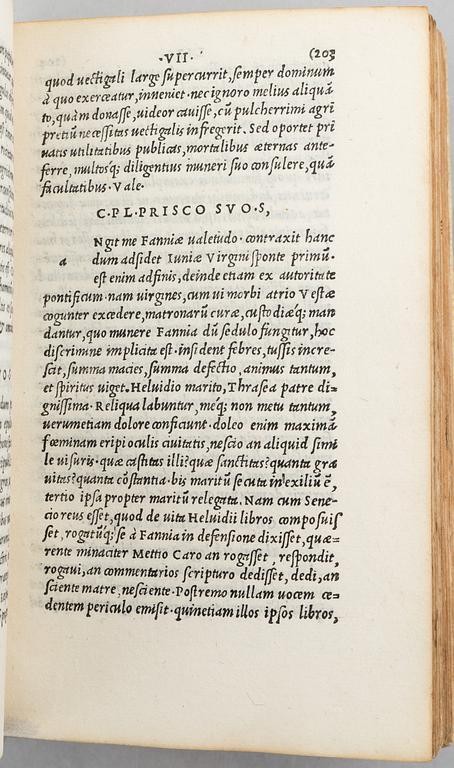 ·VII· (203
quod vectigali large supercurrit, semper dominum
à quo exerceatur, inueniet· nec ignoro melius aliquã
to, quàm donasse, uideor cauisse, cũ pulcherrimi agri
pretiũ necessitas uectigalis infregerit. Sed oportet pri
uatis utilitatibus publicas, mortalibus æternas ante-
ferre, multosq; diligentius muneri suo consulere, quã
facultatibus· Vale·
C·PL·PRISCO SVO·S,
a
Ngit me Fanniæ ualetudo· contraxit hanc
dum adsidet Iuniæ Virgini sponte primũ·
est enim adfinis, deinde etiam ex autoritate
pontificum· nam uirgines, cum ui morbi atrio Vestæ
cogunter excedere, matronarũ curæ, custodiæq; man
dantur, quo munere Fannia dũ sedulo fungitur, hoc
discrimine implicita est· insident febres, tussis incre-
scit, summa macies, summa defectio, animus tantum,
et spiritus uiget· Heluidio marito, Thrasea patre di=
gnissima· Reliqua labuntur, meq; non metu tantum,
uerumetiam dolore conficiunt· doleo enim maximã
fœminam eripi oculis ciuitatis, nescio an aliquid simi
le uisuris· quæ castitas illi? quæ sanctitas? quanta gra
uitas? quanta cõstantia· bis maritũ secuta in exiliũ ẽ,
tertio ipsa propter maritũ relegata. Nam cum Sene-
cio reus esset, quod de uita Heluidii libros composuis
set, rogatũq; se à Fannia in defensione dixisset, quæ=
rente minaciter Mettio Caro an rogasset, respondit,
rogaui, an commentarios scripturo dedisset, dedi, an
sciente matre, nesciente· Postremo nullam uocem ce=
dentem periculo emisit· quinetiam illos ipsos libros,